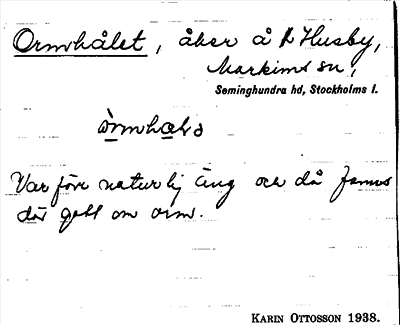 Ormhålet, åker å Husby,
Markims sn,
Seminghundra hd, Stockholms l.
Var förr naturlig äng och då fanns
där gott om orm.
KARIN OTTOSSON 1938.